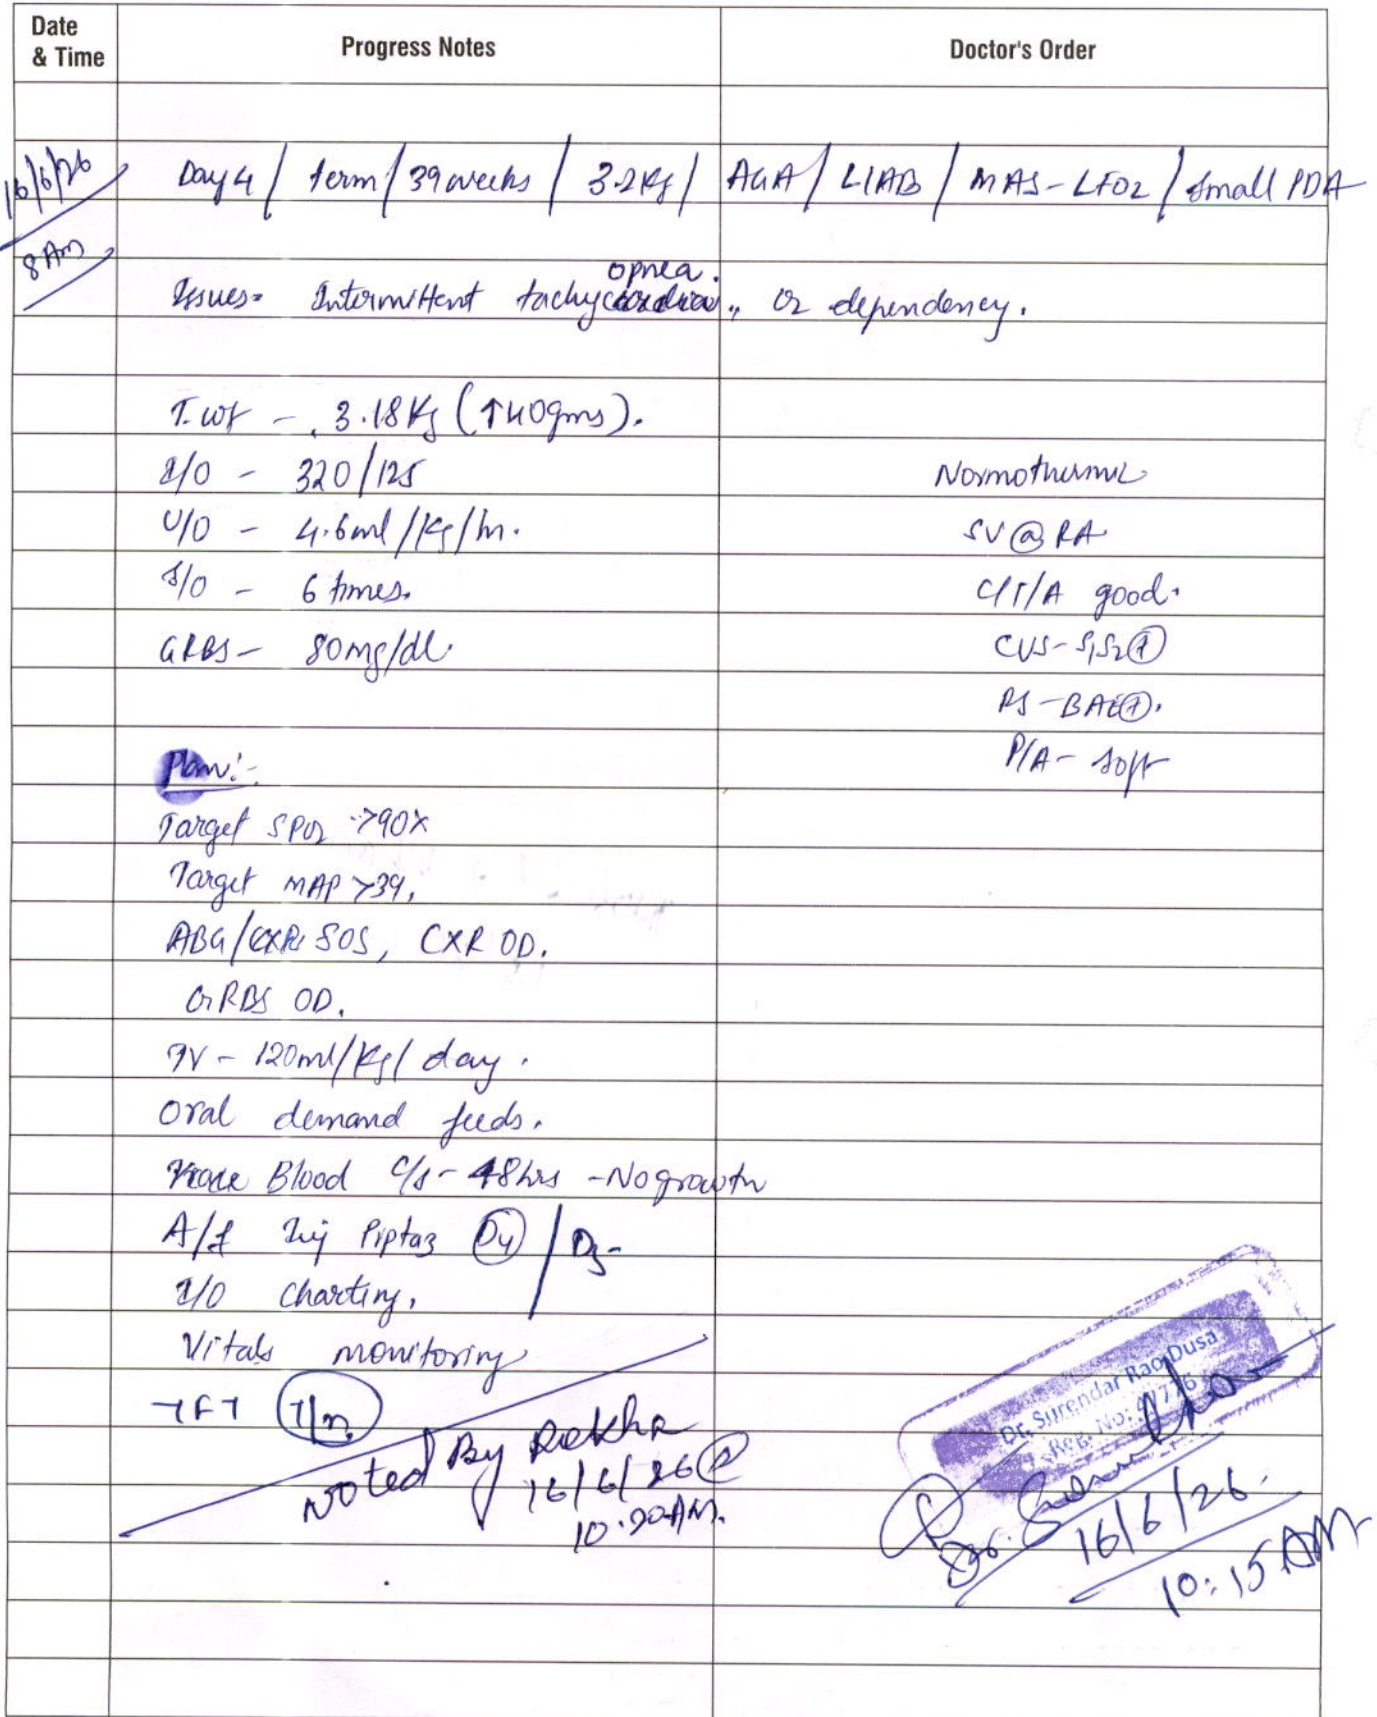 Date & Time
Progress Notes
Doctor's Order
16/6/26
8 Am
Day 4 / term / 39 weeks / 3.2 kg / AGA / LIAB / MAS - LFO2 / small PDA
opnea.
Issues - Intermittent tachycardia, O2 dependency.
T. wt - 3.18 Kg (↑40gms).
I/O - 320/125
Normothermic
U/O - 4.6ml/Kg/hr.
SV @ RA
S/O - 6 times.
C/T/A good.
GRBS - 80mg/dl.
CVS - S1S2 (+)
RS - BAE (+).
Plan:-
P/A - soft
Target SPO2 >90%
Target MAP >39.
ABG/CXR SOS, CXR OD.
GRBS OD.
TV - 120ml/Kg/day.
Oral demand feeds.
Trace Blood c/s - 48hrs - No growth
A/f Inj Piptaz (D4) / D3-
I/O charting.
Vitals monitoring
TFT T/m.
Noted By Rekha
16/6/26 @
10:20AM.
Dr. Surendar Rao Dusa
Reg. No:
16/6/26.
10:15 AM